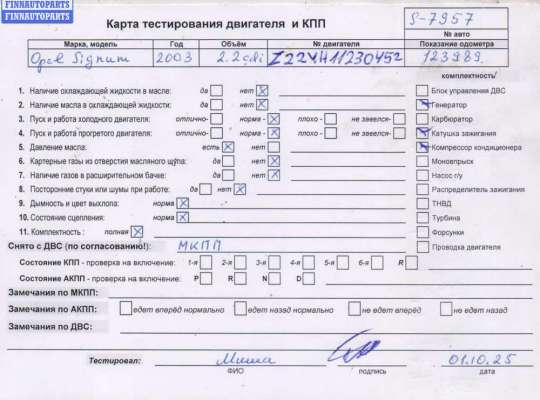 FINNAUTOPARTS
FINNAUTOPARTS
Карта тестирования двигателя и КПП
S-7957
№ авто
Марка, модель Год Объём № двигателя Показание одометра
Opel Signum 2003 2.2 cdi Z22YH11230452 123989
комплектность/
1. Наличие охлаждающей жидкости в масле: да нет Блок управления ДВС
2. Наличие масла в охлаждающей жидкости: да нет Генератор
3. Пуск и работа холодного двигателя: отлично- норма - плохо - не завелся- Карбюратор
4. Пуск и работа прогретого двигателя: отлично- норма - плохо - не завелся- Катушка зажигания
5. Давление масла: есть нет Компрессор кондиционера
6. Картерные газы из отверстия масляного щупа: да нет Моновпрыск
7. Наличие газов в расширительном бачке: да нет Насос г/у
8. Посторонние стуки или шумы при работе: да нет Распределитель зажигания
9. Дымность и цвет выхлопа: норма ТНВД
10. Состояние сцепления: норма Турбина
11. Комплектность : полная Форсунки
Снято с ДВС (по согласованию!): МКПП Проводка двигателя
Состояние КПП - проверка на включение: 1-я 2-я 3-я 4-я 5-я 6-я R
Состояние АКПП - проверка на включение: P R N D
Замечания по МКПП:
Замечания по АКПП: едет вперёд нормально едет назад нормально не едет вперёд не едет назад
Замечания по ДВС:
Тестировал: Миша 01.10.25
ФИО подпись дата